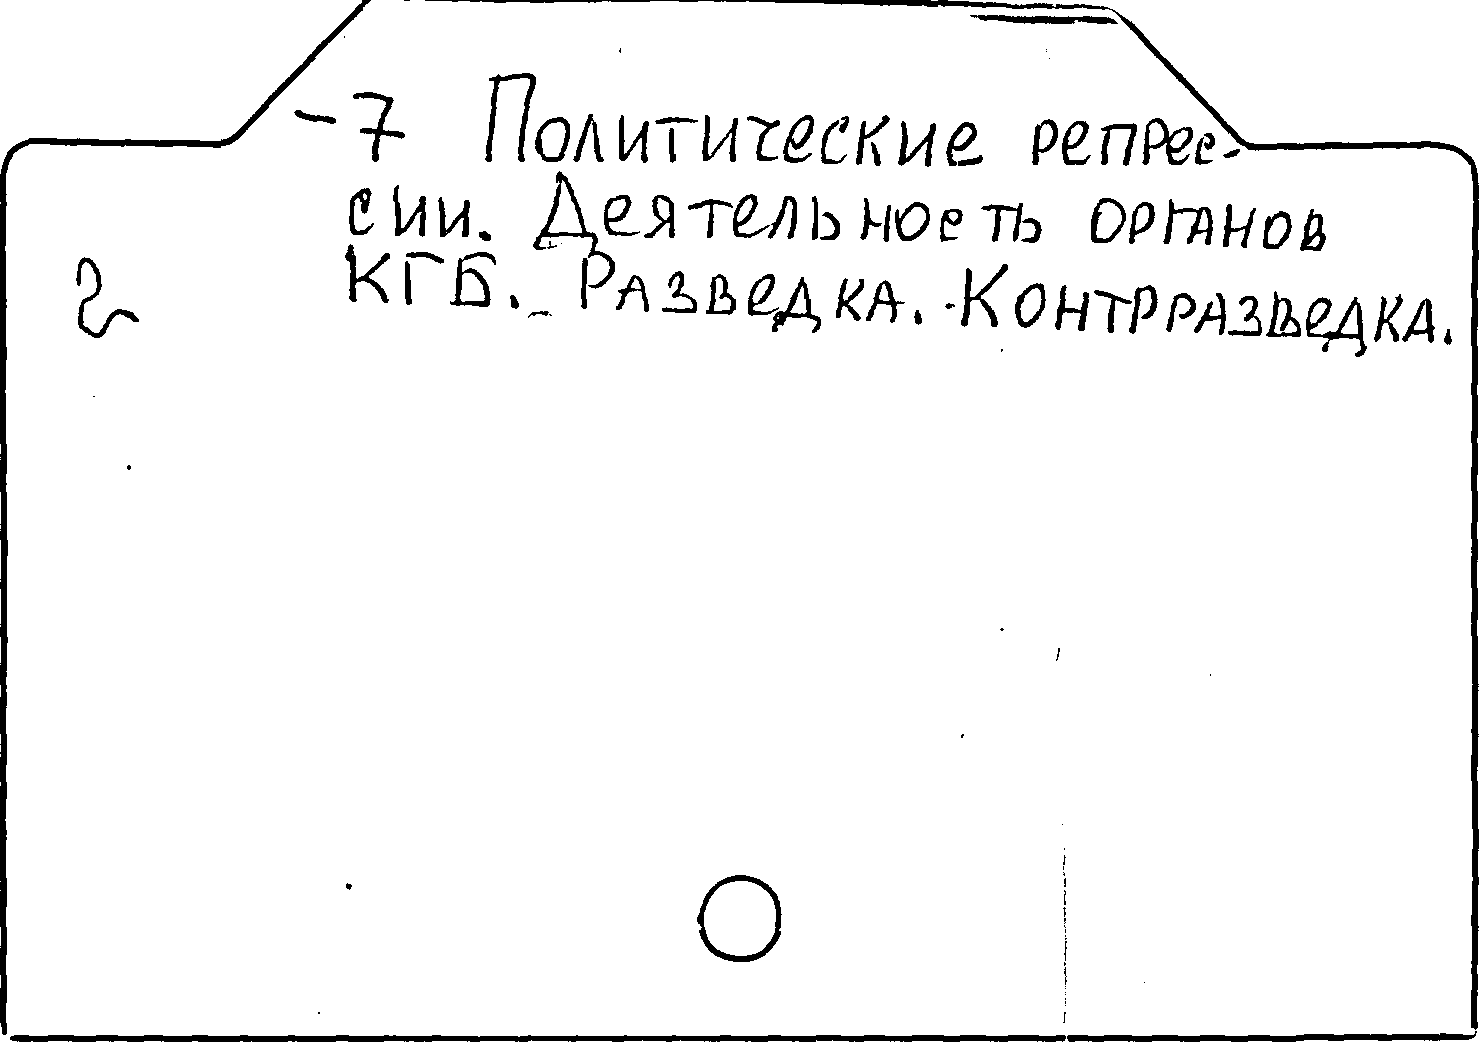 -7 Политические репрес-
сии. Деятельность органов
КГБ. Разведка. Контрразведка.